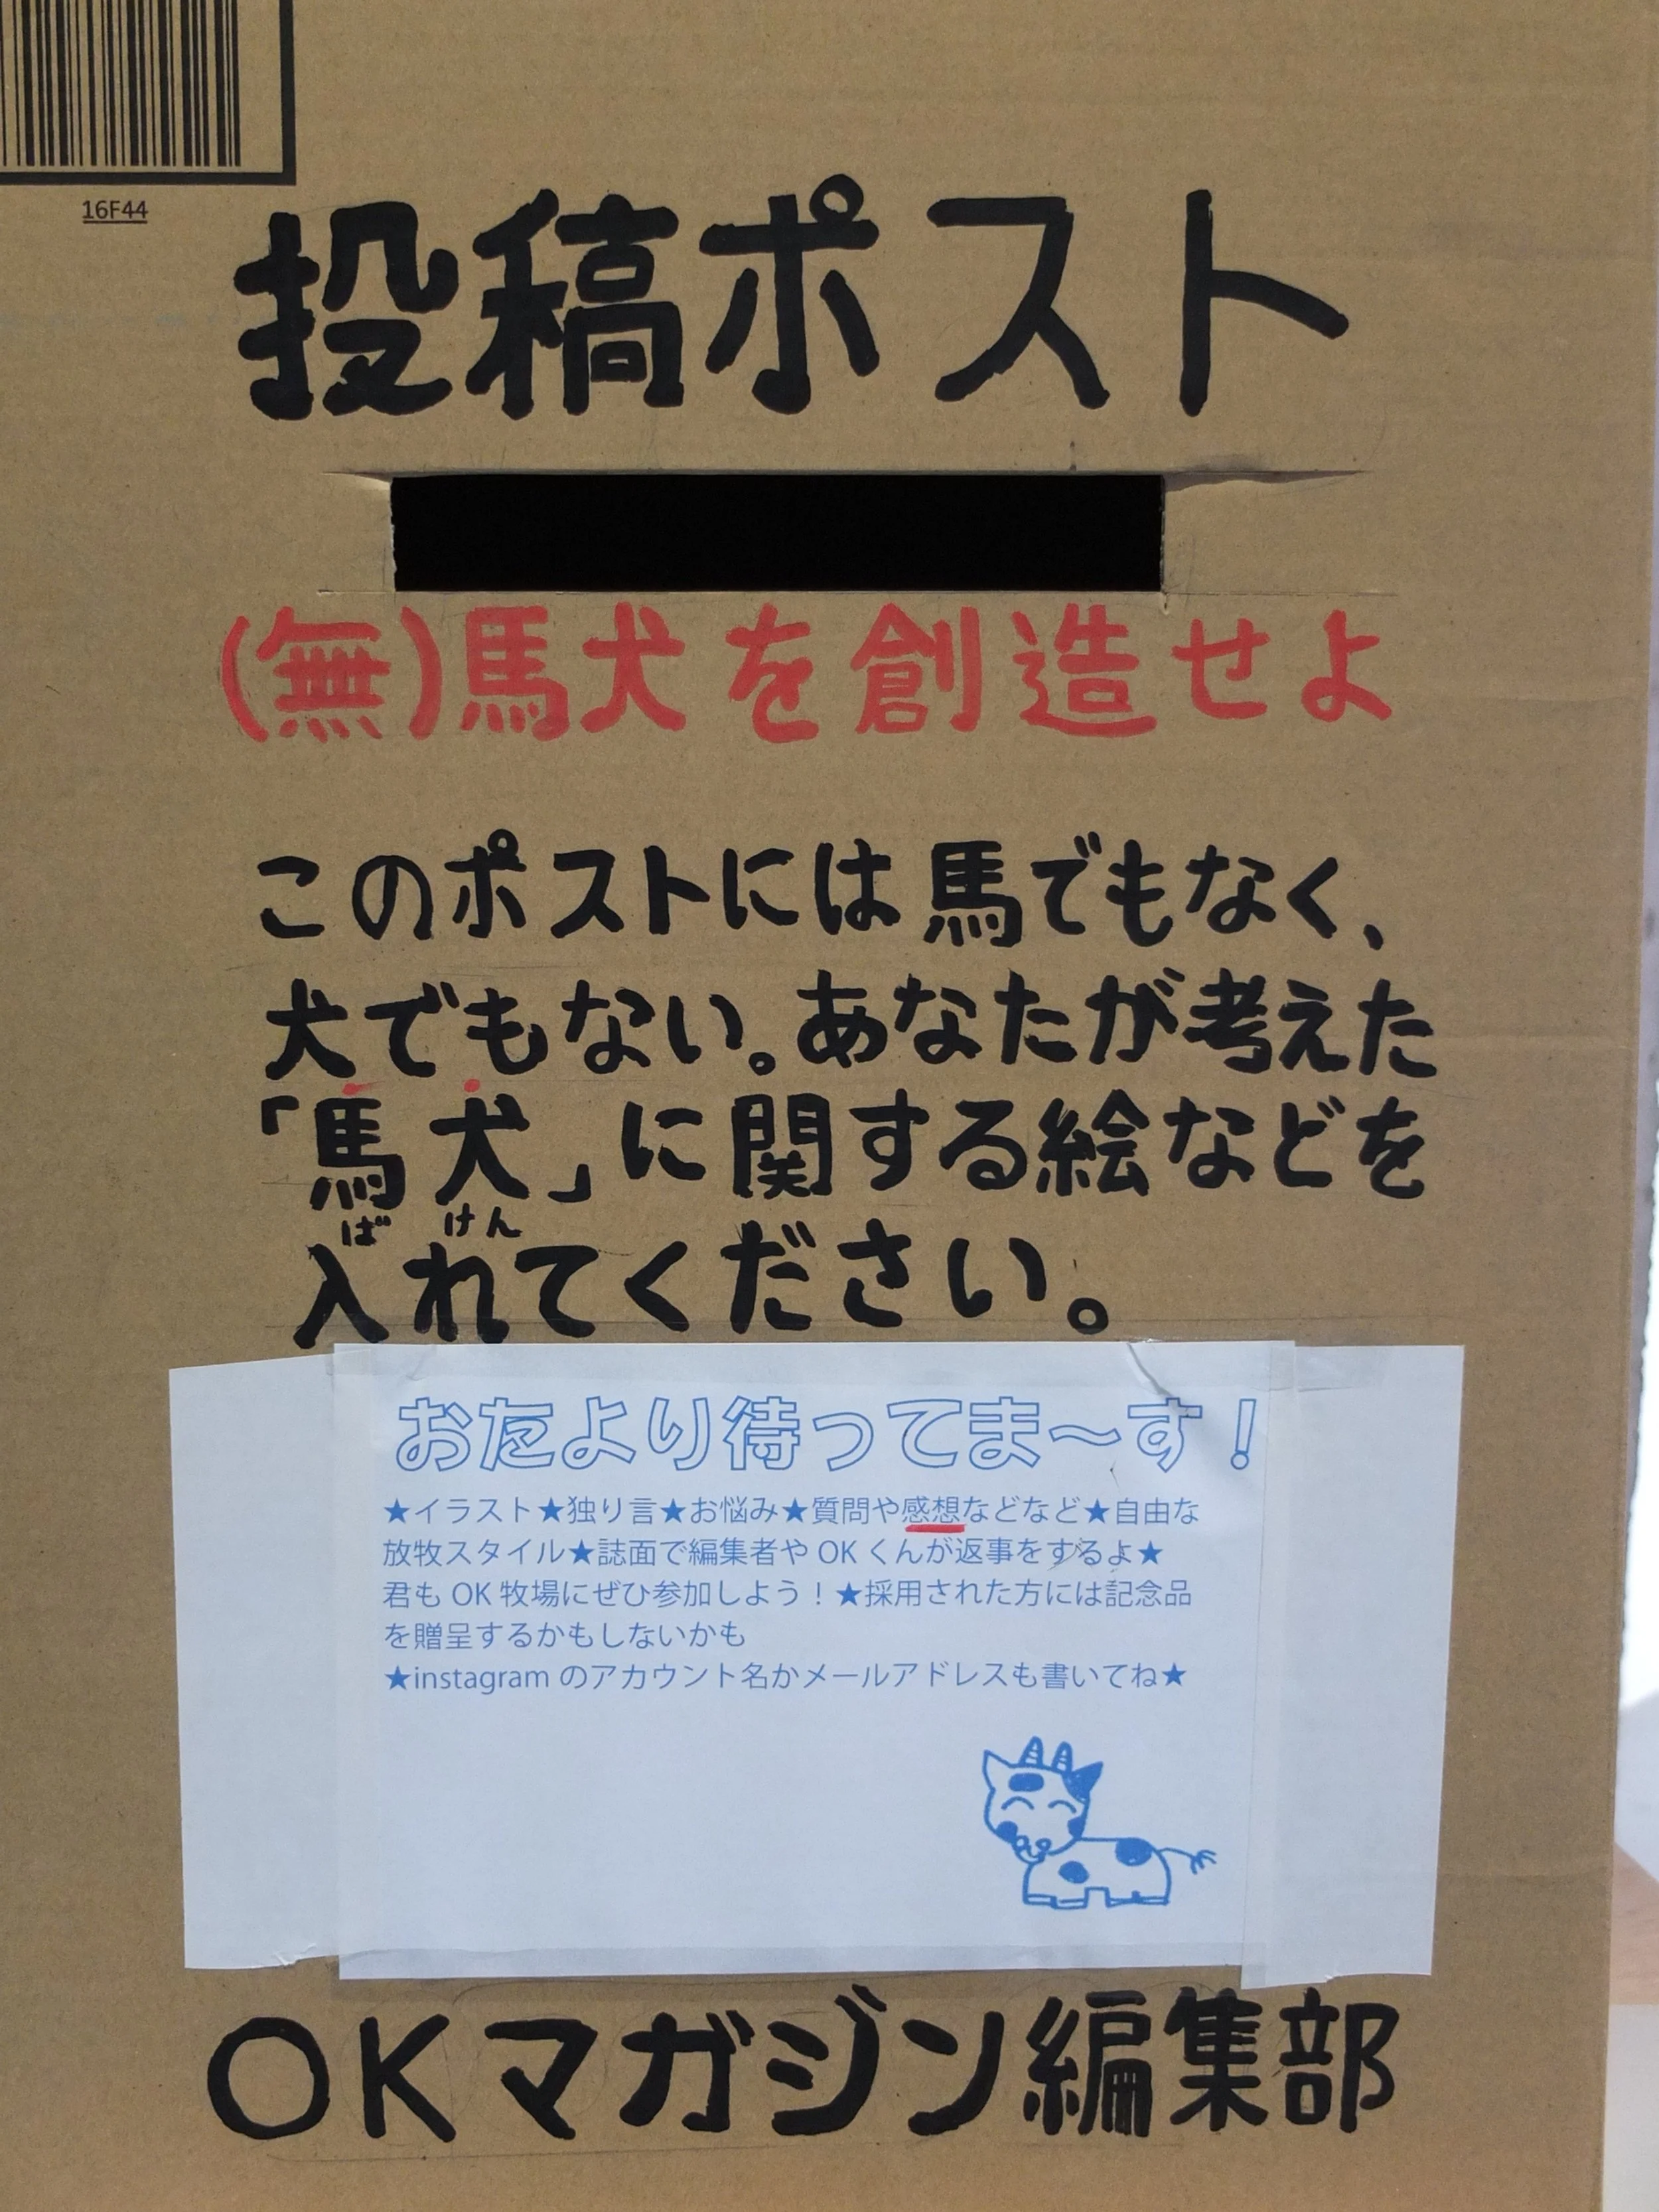 16F44
投稿ポスト
(無)馬犬を創造せよ
このポストには馬でもなく、
犬でもない。あなたが考えた
「馬犬」に関する絵などを
ばけん
入れてください。
おたより待ってま〜す!
★イラスト★独り言★お悩み★質問や感想などなど★自由な
放牧スタイル★誌面で編集者やOKくんが返事をするよ★
君もOK牧場にぜひ参加しよう!★採用された方には記念品
を贈呈するかもしないかも
★instagramのアカウント名かメールアドレスも書いてね★
OKマガジン編集部